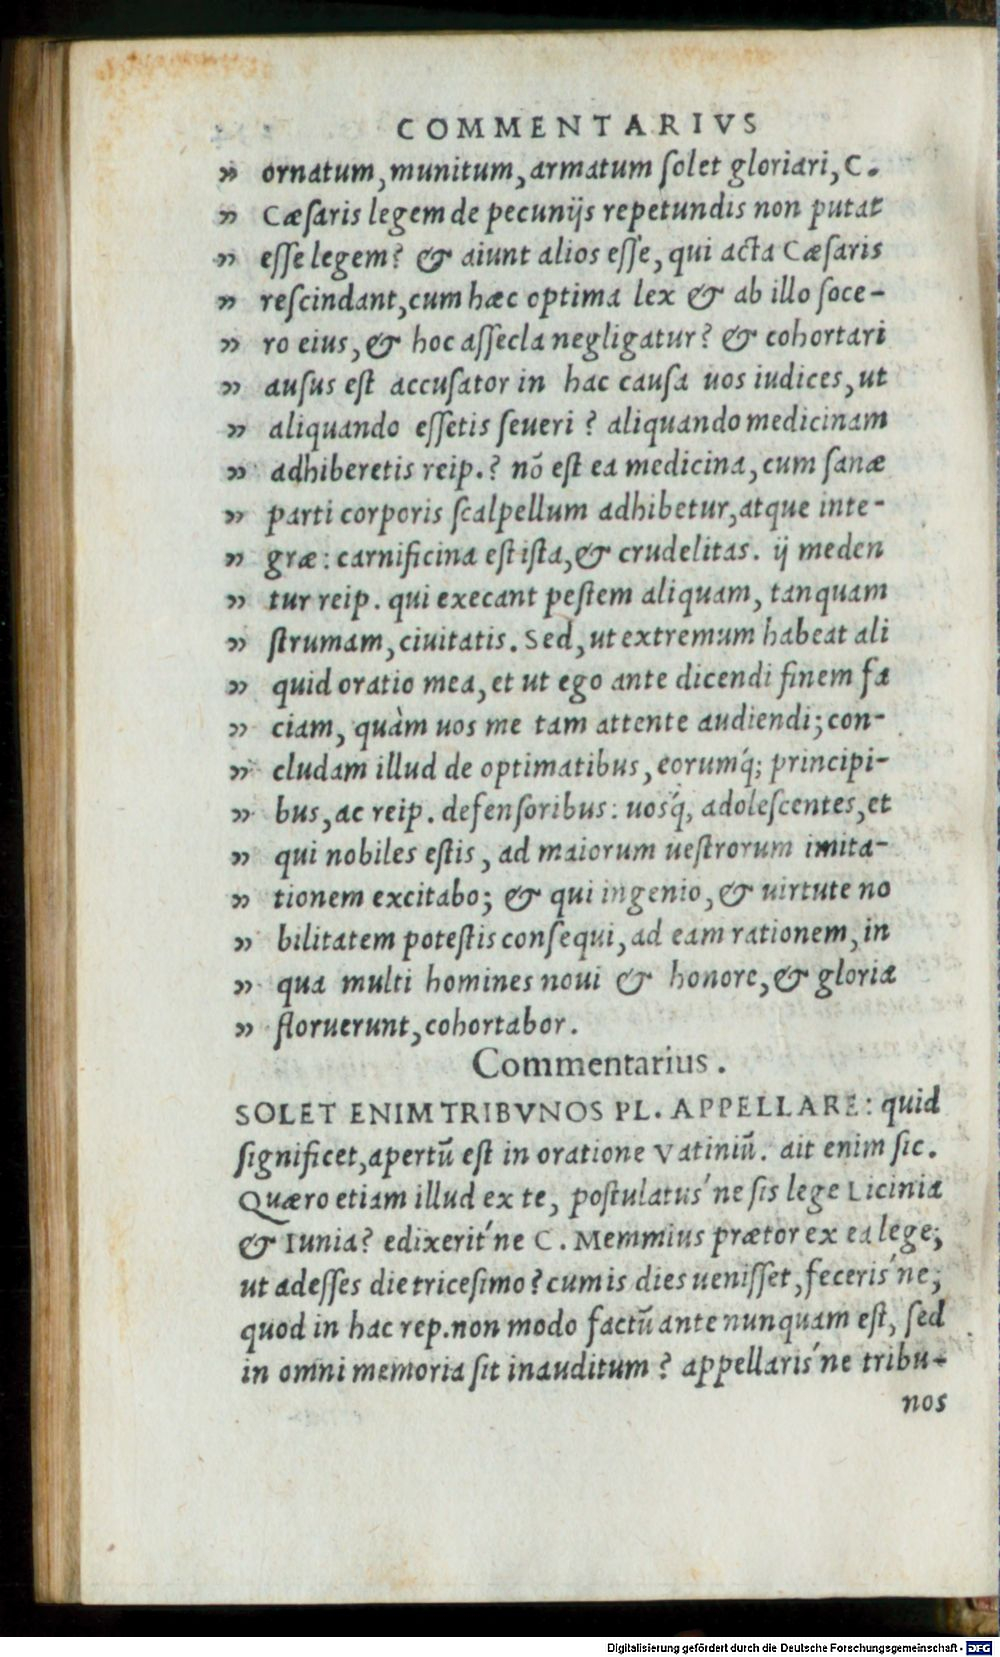 COMMENTARIVS
„ ornatum, munitum, armatum ſolet gloriari, C.
„ Cæſaris legem de pecunijs repetundis non putat
„ eſſe legem? & aiunt alios eſſe, qui acta Cæſaris
„ reſcindant, cum hæc optima lex & ab illo ſoce-
„ ro eius, & hoc aſſecla negligatur? & cohortari
„ auſus eſt accuſator in hac cauſa uos iudices, ut
„ aliquando eſſetis ſeueri? aliquando medicinam
„ adhiberetis reip.? nō eſt ea medicina, cum ſanæ
„ parti corporis ſcalpellum adhibetur, atque inte-
„ græ: carnificina eſt iſta, & crudelitas. ij meden
„ tur reip. qui execant peſtem aliquam, tanquam
„ ſtrumam, ciuitatis. Sed, ut extremum habeat ali
„ quid oratio mea, et ut ego ante dicendi finem fa
„ ciam, quàm uos me tam attente audiendi; con-
„ cludam illud de optimatibus, eorumq́; principi-
„ bus, ac reip. defenſoribus: uosq́, adoleſcentes, et
„ qui nobiles eſtis, ad maiorum ueſtrorum imita-
„ tionem excitabo; & qui ingenio, & uirtute no
„ bilitatem poteſtis conſequi, ad eam rationem, in
„ qua multi homines noui & honore, & gloria
„ floruerunt, cohortabor.
Commentarius.
SOLET ENIM TRIBVNOS PL. APPELLARE: quid
ſignificet, apertū eſt in oratione Vatiniū. ait enim ſic.
Quæro etiam illud ex te, poſtulatus´ne ſis lege Licinia
& Iunia? edixerit´ne C. Memmius prætor ex ea lege;
ut adeſſes die triceſimo? cum is dies ueniſſet, feceris´ne;
quod in hac rep. non modo factū ante nunquam eſt, ſed
in omni memoria ſit inauditum? appellaris´ne tribu-
nos
Digitalisierung gefördert durch die Deutsche Forschungsgemeinschaft - DFG